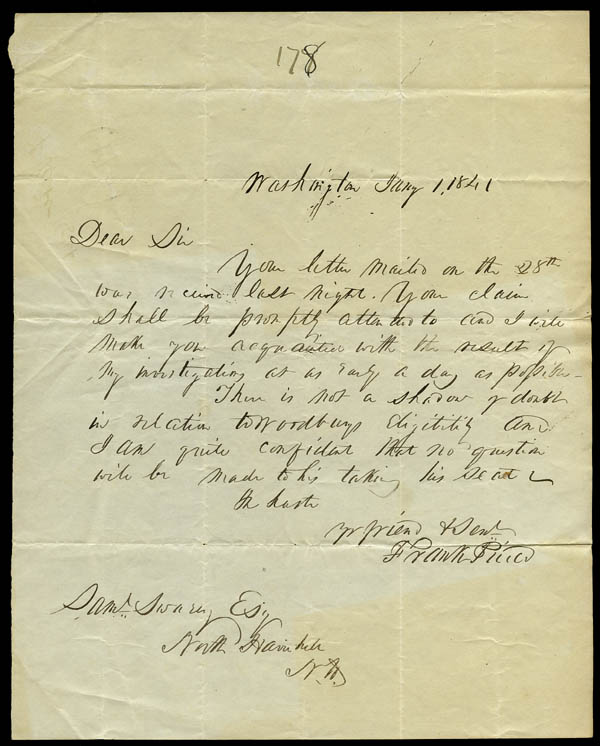 178
Washington Jany 1, 1841
Dear Sir
Your letter mailed on the 28th
was received last night. Your claim
shall be promptly attended to and I will
make you acquainted with the result of
my investigating at as early a day as possible
There is not a shadow of doubt
in relation to Woodburys eligibility and
I am quite confident that no question
will be made to his taking his seat
In haste
yr friend & Servt
Frank Pierce
Saml Swasey Esq
North Haverhill
N.H.